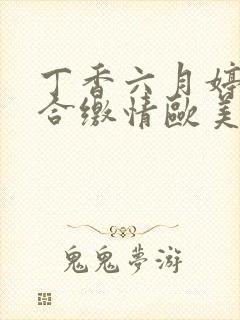 丁香六月婷
合缴情歐美
鬼鬼夢游